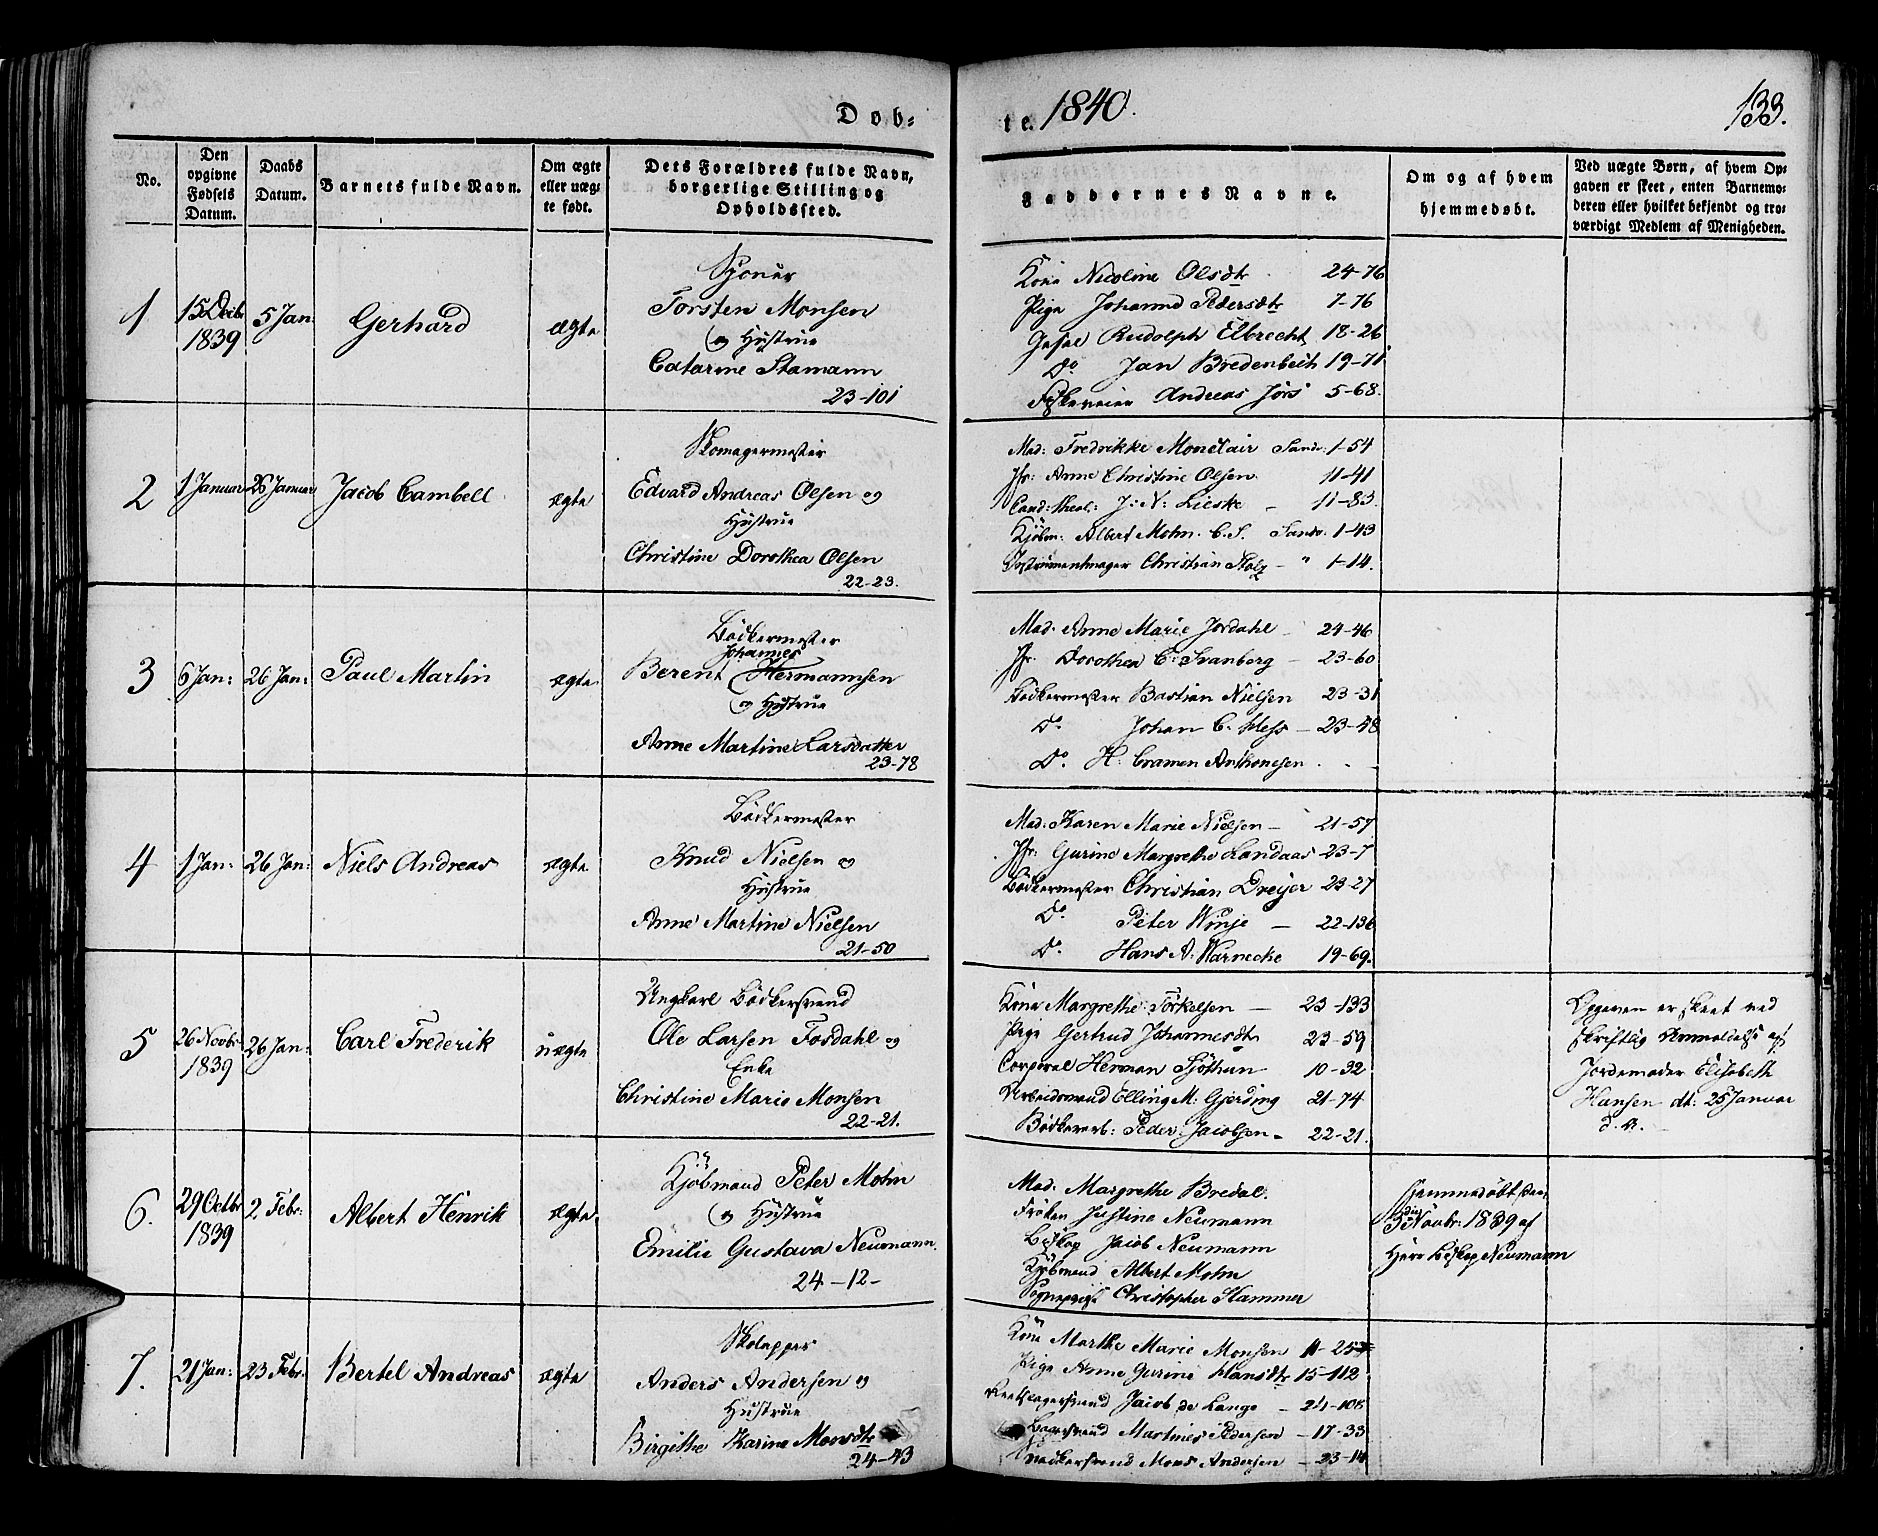 Døb-
te. 1840.
133.
No.
Den opgivne Fødsels Datum.
Daabs Datum.
Barnets fulde Navn.
Om ægte eller uæg- te født.
Dets Forældres fulde Navn, borgerlige Stilling og Opholdssted.
Faddernes Navne.
Om og af hvem hjemmedøbt.
Ved uægte Børn, af hvem Op- gaven er skeet, enten Barnemo- deren eller hvilket bekjendt og tro- værdigt Medlem af Menigheden.
1
15 Decbr 1839
5 Jan:
Gerhard
ægte
Torsten Monsen
og Hustrue
Catarine Stamann
23-101
Kone Nicoline Olsdtr 24-76
Pige Johanna Pedersdtr 7-76
Rudolph Elbrecht 18-26
Do Jan Bredenbech 19-71
Andreas Jörs 5-68.
2
1 Januar
26 Januar
Jacob Cambell
ægte
Skomagermester
Edvard Andreas Olsen og
Hustrue
Christine Dorothea Olsen
22-23.
Mad: Fredrikke Monclair Sandv: 1-54
Jfr: Anne Christine Olsen 11-41
Cand: theol: J: N: Lieske - 11-83.
Kjöbm: Albert Mohn. C. S. Sandv. 1-43
Instrumentmager Christian Stolz - " 1-14.
3
6 Jan:
26 Jan:
Paul Martin
ægte
Bödkermester
Johannes
Berent Hermannsen
og Hustrue
Anne Martine Larsdatter
23-78
Mad. Anne Marie Jordahl - 24-46
Jfr. Dorothea C: Svanberg - 23-60
Bödkermester Bastian Nielsen 23-31
Do Johan C. Hess - 23-48
Do. H: Cramen Anthonesen . -
4
1 Jan:
26 Jan:
Niels Andreas
ægte
Bödkermester
Knud Nielsen og
Hustrue
Anne Martine Nielsen
21-50
Mad: Karen Marie Nielsen - 21-57
Jfr: Gurine Margrethe Landaas 23-7
Bödkermester Christian Dreyer 23-27
Do. Peter Winje - 22-136
Do. Hans A: Warneche 19-69.
5
26 Novbr 1839
26 Jan:
Carl Frederik
uægte
Ungkarl Bödkersvend
Ole Larsen Fosdahl og
Enke
Christine Marie Monsen
22-21.
Kone Margrethe Torkelsen - 23-133
Pige Gertrud Johannesdtr 23-59
Corporal Herman Sjöthun 10-32
Arbeidsmand Elling M: Gjerding 21-74
Bödkerarb: Peder Jacobsen - 22-21.
Opgaven er skeet ved
skriftlig Anmeldelse af
Jordemoder Elisabeth
Hansen dt: 25 Januar
d. A.
6.
29 Octbr 1839
2 Febr:
Albert Henrik
ægte
Kjöbmand Peter Mohn
og Hustrue
Emilie Gustava Neumann.
24-12-
Mad. Margrethe Bredal.
Fröken Justine Neumann
Biskop Jacob Neumann
Kjöbmand Albert Mohn
Sogneprest Christopher Stammer
Hjemmedöbt den
3 Novbr: 1839 af
Herr Biskop Neumann
7.
21 Jan:
23 Febr.
Bertel Andreas
ægte
Anders Andersen og
Hustrue
Birgithe Karine Monsdtr
24-43
Kone Marthe Marie Monsen
Pige Anne Gurine Hansdtr 15-112
Jacob de Lange - 24-106
Bagersvend Martines Pedersen - 17-33
Mons Andersen - 23-14